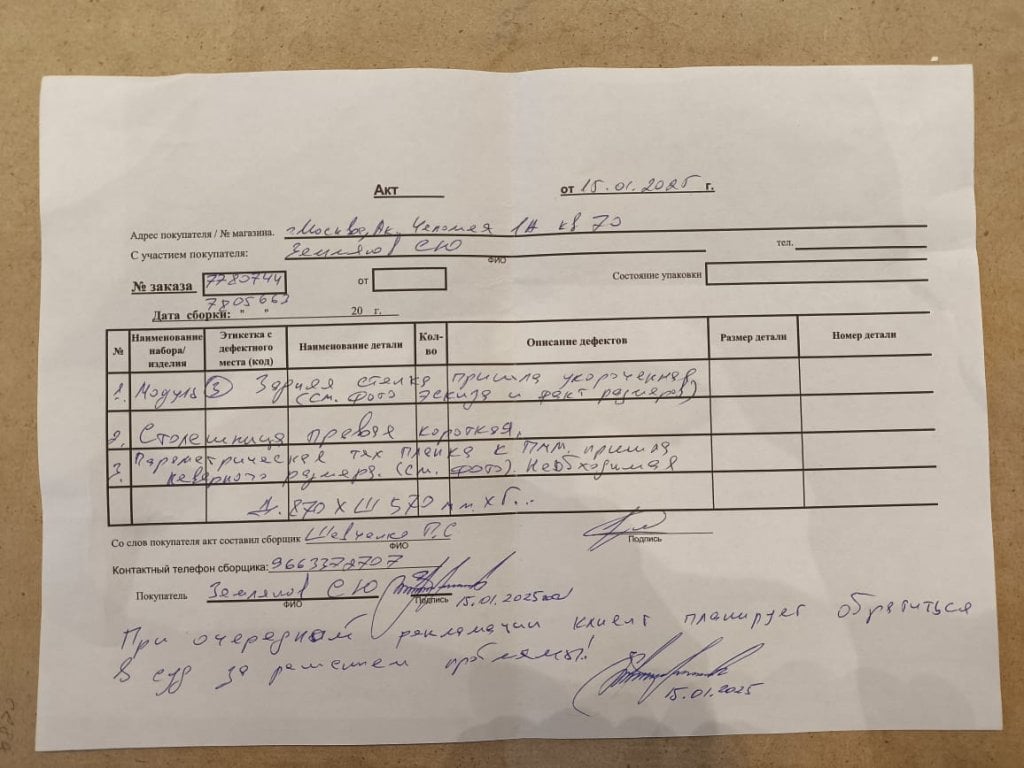 Акт от 15.01.2025 г.
Адрес покупателя / № магазина. г. Москва, Ак. Челомея 1А кв 70
С участием покупателя: Земляков С Ю тел.
ФИО
№ заказа 7780744 от Состояние упаковки
7805663
Дата сборки: " " 20 г.
№ Наименование набора/изделия Этикетка с дефектного места (код) Наименование детали Кол-во Описание дефектов Размер детали Номер детали
1. Модуль 3 Задняя стенка пришла укороченная
(см. фото эскиза и факт размеров)
2. Столешница правая короткая.
3. Параметрическая тех планка к ПММ. пришла
неверного размера. (см. фото). Необходимая
Д. 870 х Ш 570 мм. х Г...
Со слов покупателя акт составил сборщик Шевченко П.С
ФИО Подпись
Контактный телефон сборщика: 9663372707
Покупатель Земляков С Ю
ФИО Подпись 15.01.2025
При очередной рекламации клиент планирует обратиться
В суд за решением проблемы!
15.01.2025